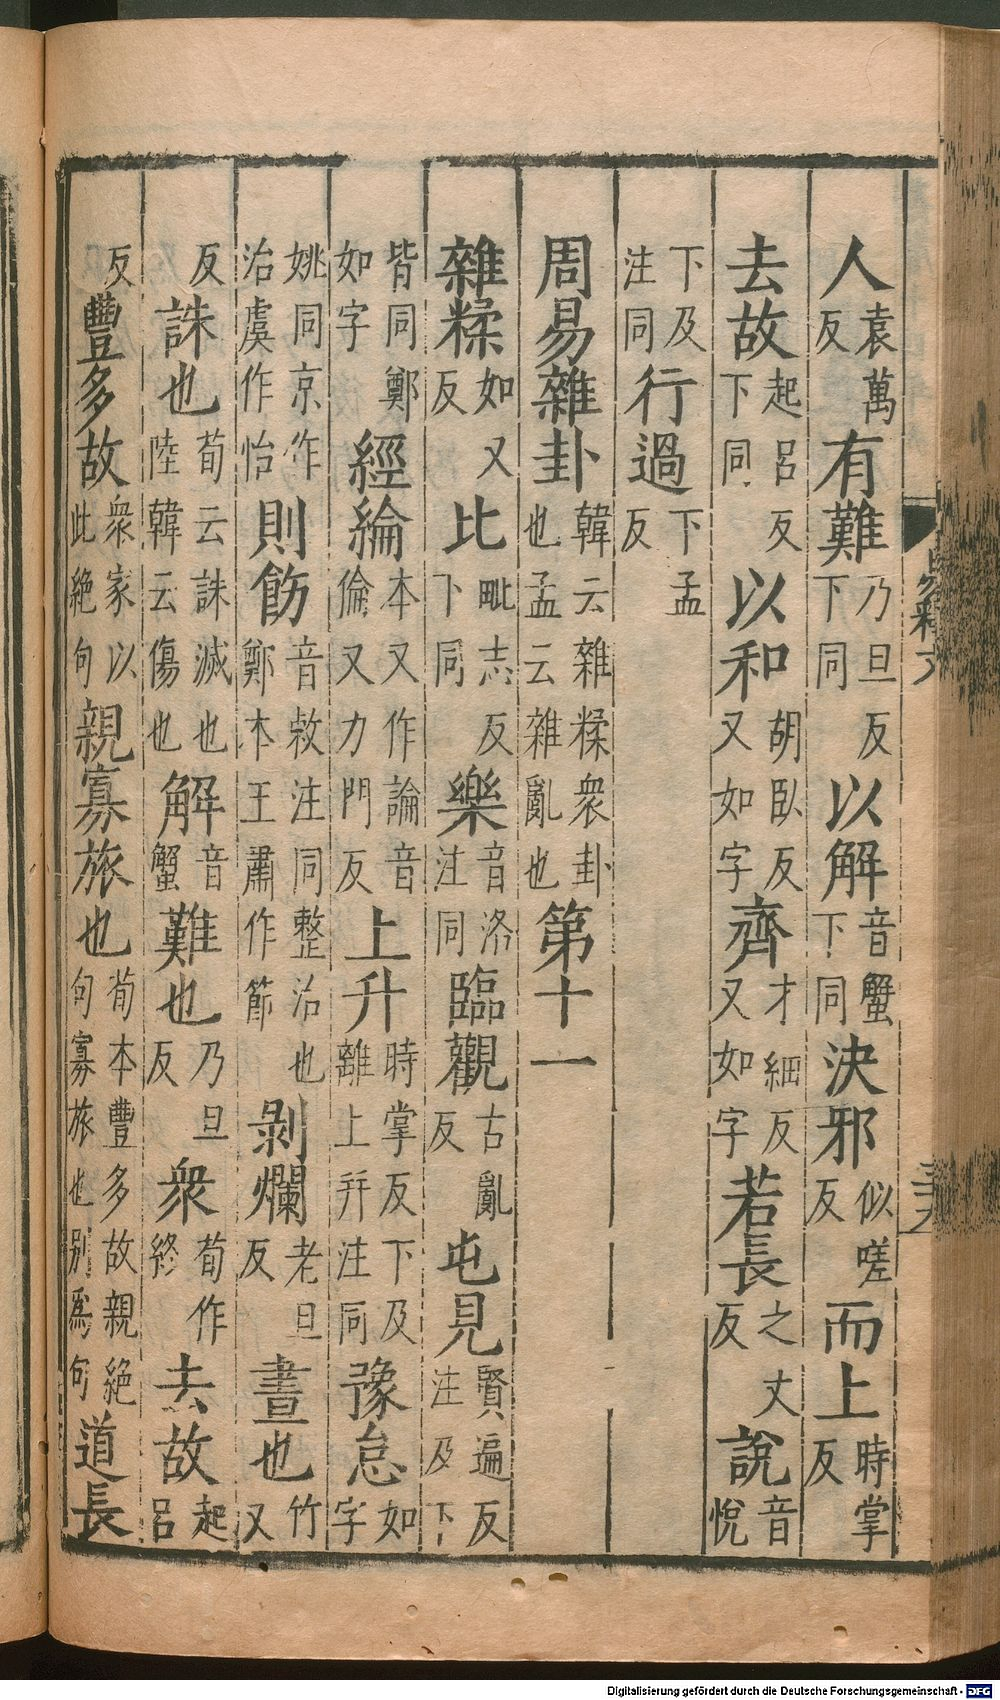 人袁萬反有難乃旦反下同以解音蟹下同決邪似嗟反而上時掌反
去故起呂反下同以和胡臥反又如字齊才細反又如字若長之丈反說音悅
下及注同行過下孟反
周易雜卦韓云雜糅衆卦也孟云雜亂也第十一
雜糅如又反比毗志反下同樂音洛注同臨觀古亂反屯見賢遍反注及下
皆同鄭如字經綸本又作論音倫又力門反上升時掌反下及離上幷注同豫怠如字
姚同京作治虞作怡則飭音敕注同整治也鄭本王肅作節剝爛老旦反晝也竹又
反誅也荀云誅滅也陸韓云傷也解音蟹難也乃旦反衆荀作終去故起呂
反豐多故衆家以此絕句親寡旅也荀本豐多故親絕句寡旅也別爲句道長
Digitalisierung gefördert durch die Deutsche Forschungsgemeinschaft - DFG